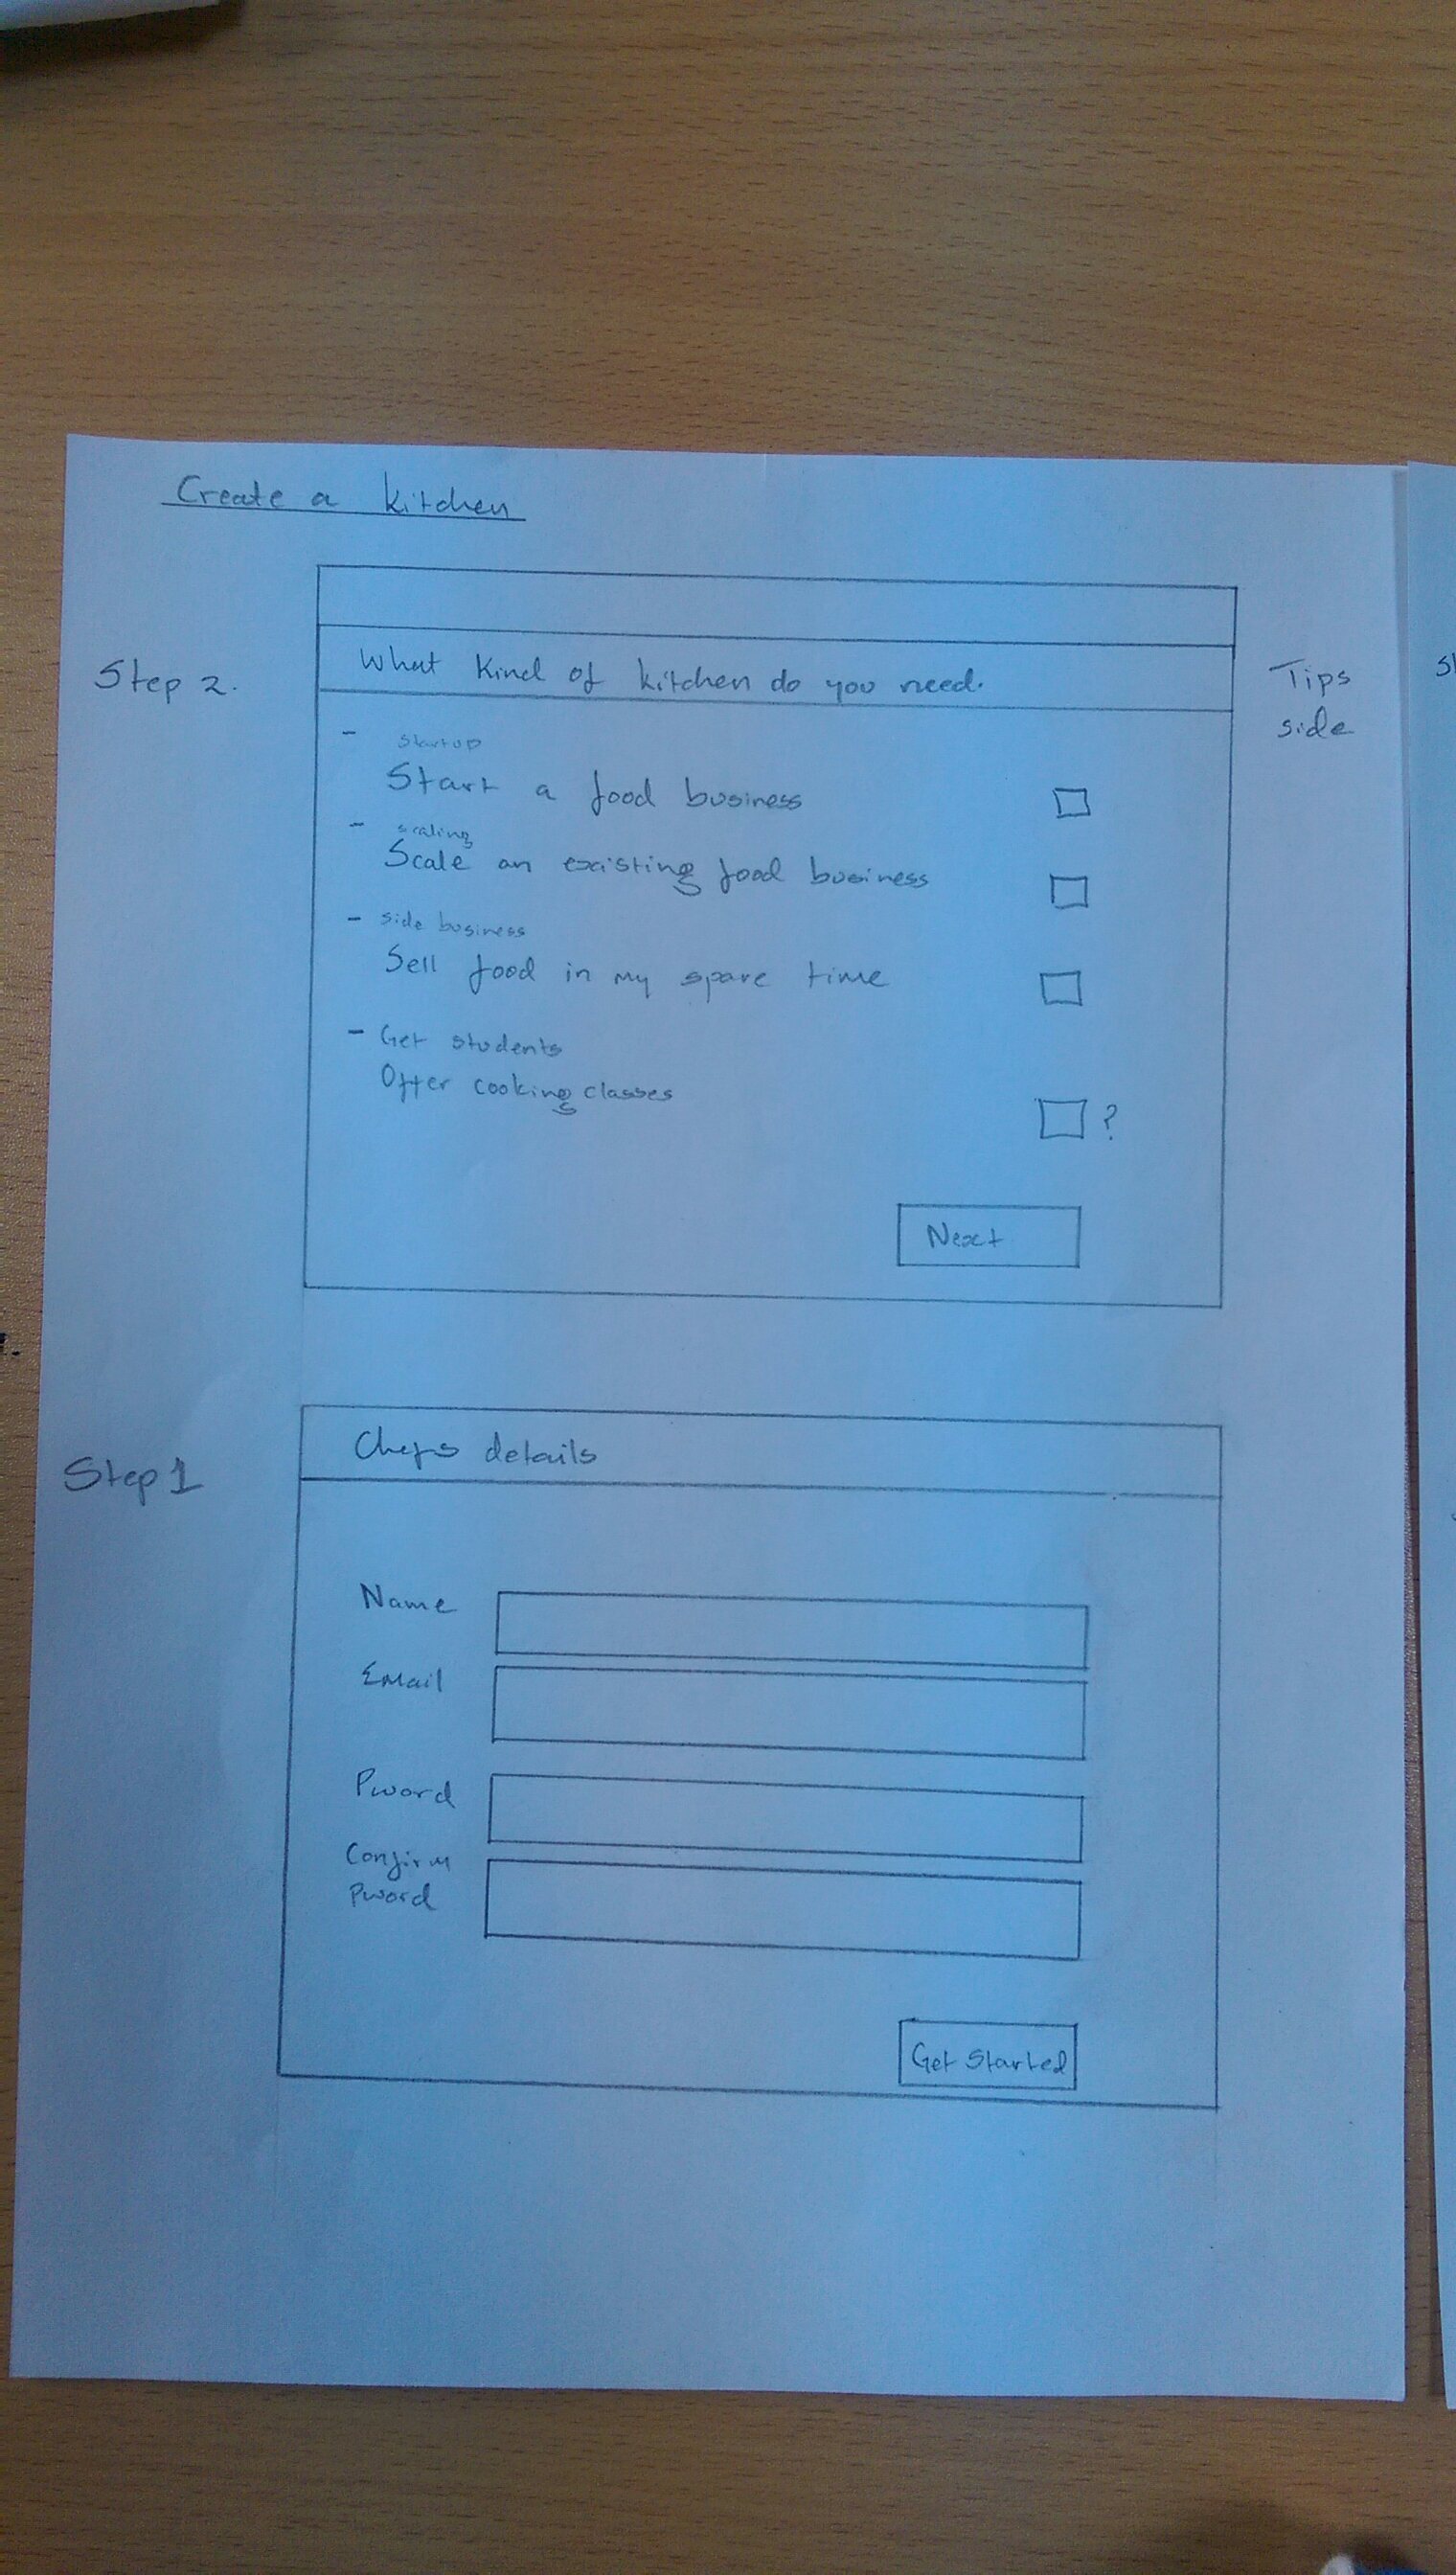 Create a kitchen
Step 2.
What Kind of kitchen do you need.
Tips
side
- startup
Start a food business
- scaling
Scale an existing food business
- side business
Sell food in my spare time
- Get students
Offer cooking classes
?
Next
Step 1
Chefs details
Name
Email
Pword
Confirm
Pword
Get Started